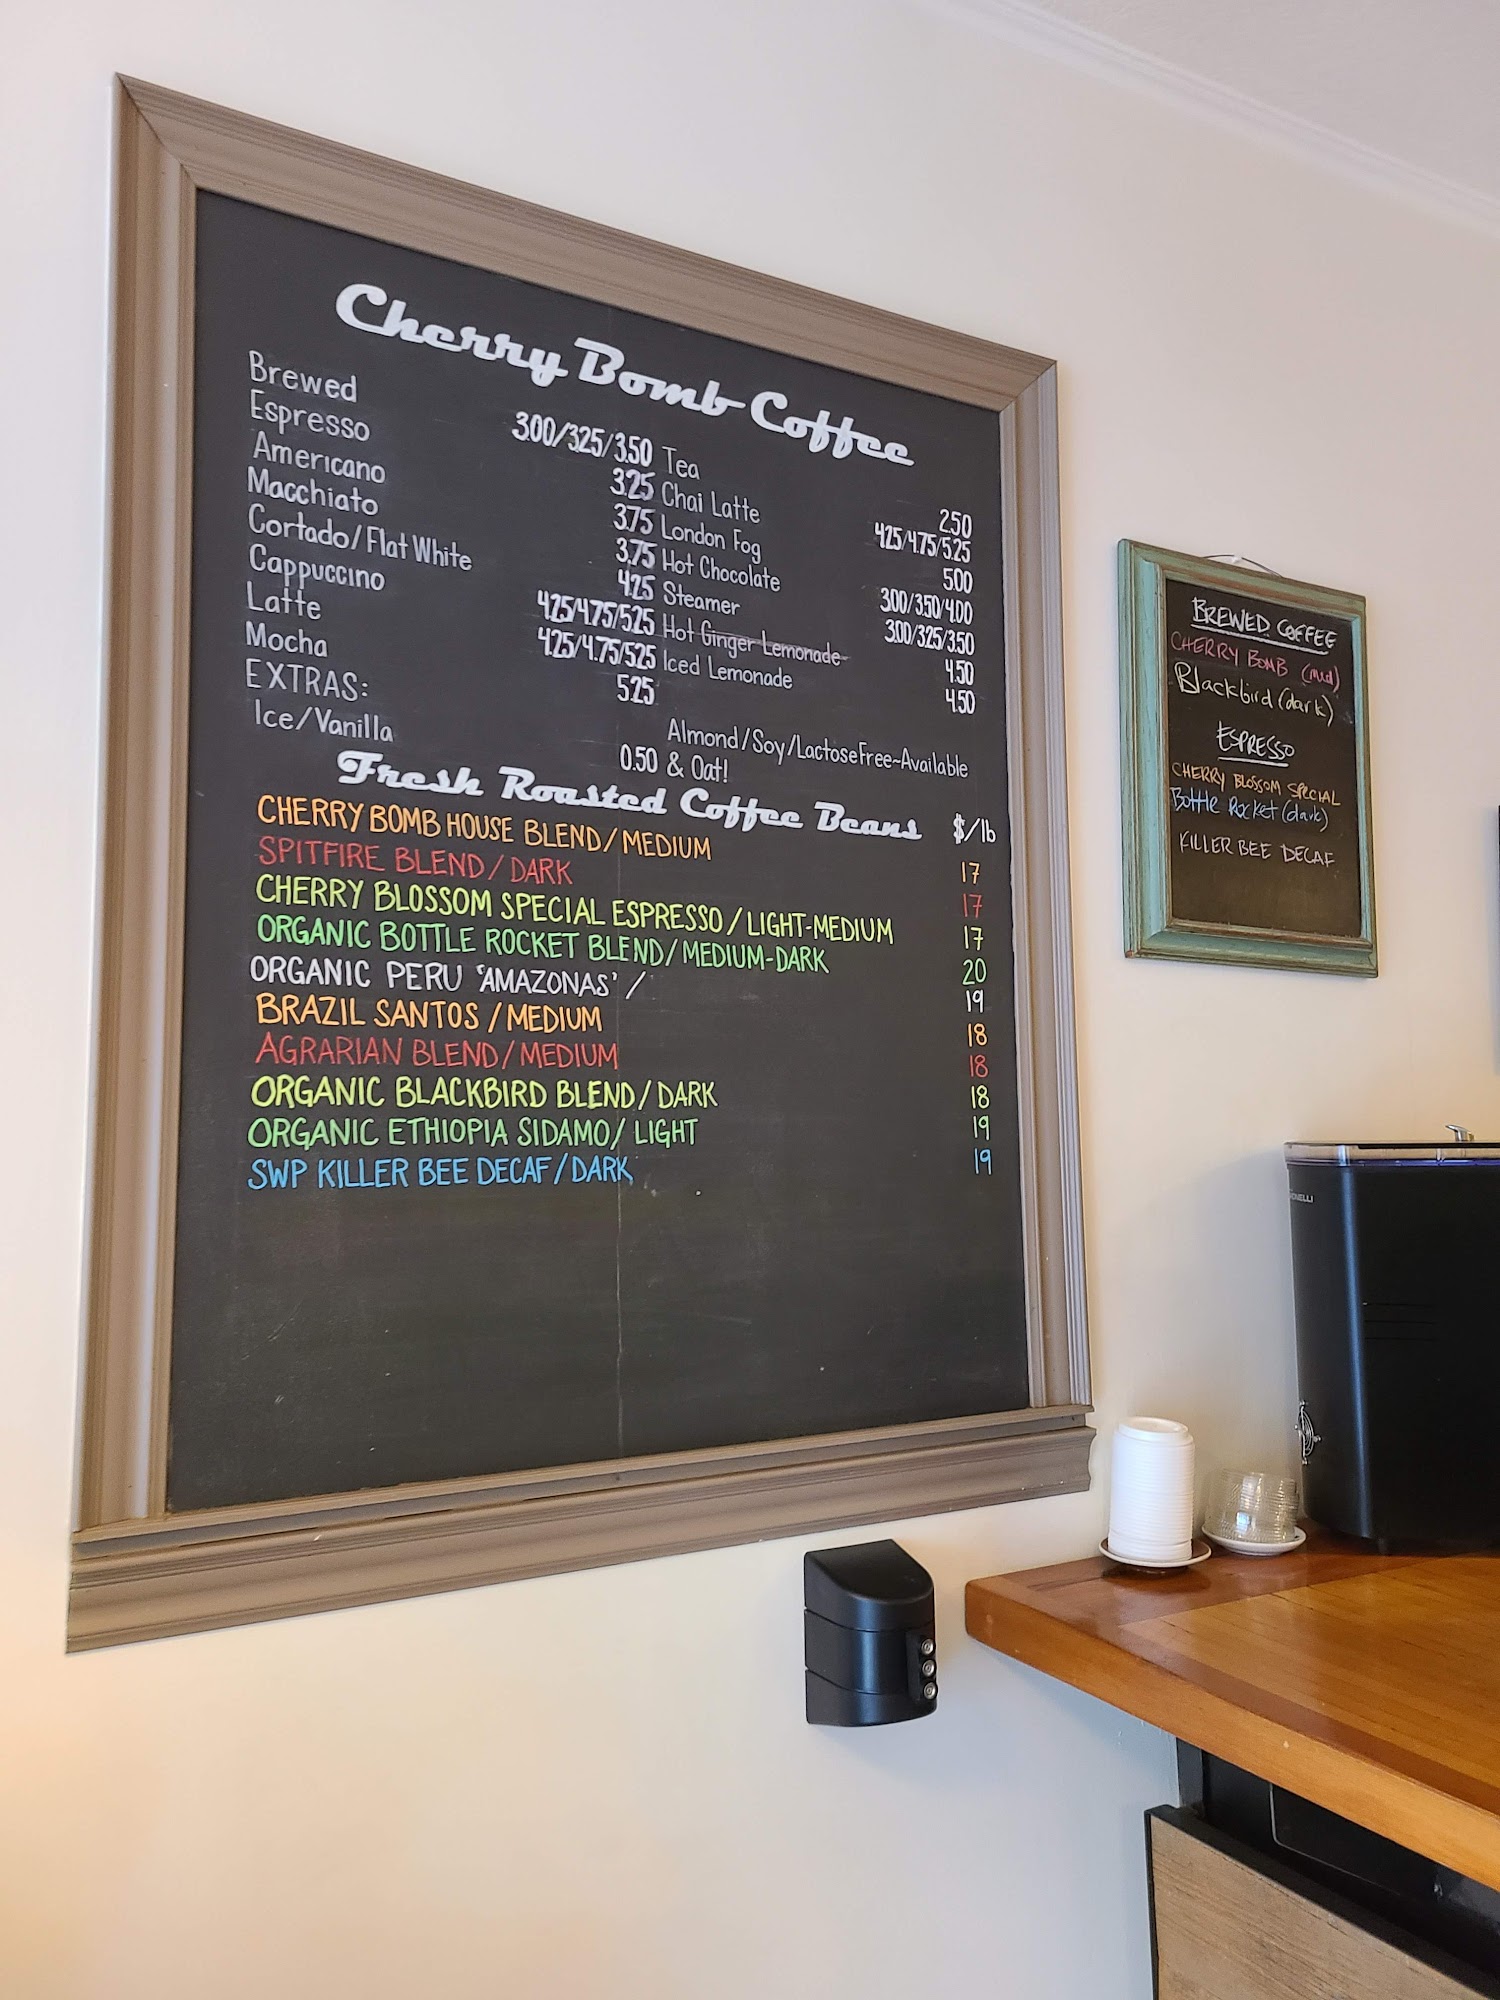 Cherry Bomb Coffee
Brewed 3.00/3.25/3.50
Espresso 3.25
Americano 3.75
Macchiato 3.75
Cortado/Flat White 4.25
Cappuccino 4.25/4.75/5.25
Latte 4.25/4.75/5.25
Mocha 5.25
EXTRAS:
Ice/Vanilla 0.50
Tea 2.50
Chai Latte 4.25/4.75/5.25
London Fog 5.00
Hot Chocolate 3.00/3.50/4.00
Steamer 3.00/3.25/3.50
Hot Ginger Lemonade 4.50
Iced Lemonade 4.50
Almond/Soy/Lactose Free~Available
& Oat!
Fresh Roasted Coffee Beans $/lb
CHERRY BOMB HOUSE BLEND/MEDIUM 17
SPITFIRE BLEND/DARK 17
CHERRY BLOSSOM SPECIAL ESPRESSO/LIGHT-MEDIUM 17
ORGANIC BOTTLE ROCKET BLEND/MEDIUM-DARK 20
ORGANIC PERU 'AMAZONAS' / 19
BRAZIL SANTOS /MEDIUM 18
AGRARIAN BLEND/MEDIUM 18
ORGANIC BLACKBIRD BLEND/DARK 18
ORGANIC ETHIOPIA SIDAMO/LIGHT 19
SWP KILLER BEE DECAF/DARK 19
BREWED COFFEE
CHERRY BOMB (med)
Blackbird (dark)
ESPRESSO
CHERRY BLOSSOM SPECIAL
Bottle Rocket (dark)
KILLER BEE DECAF